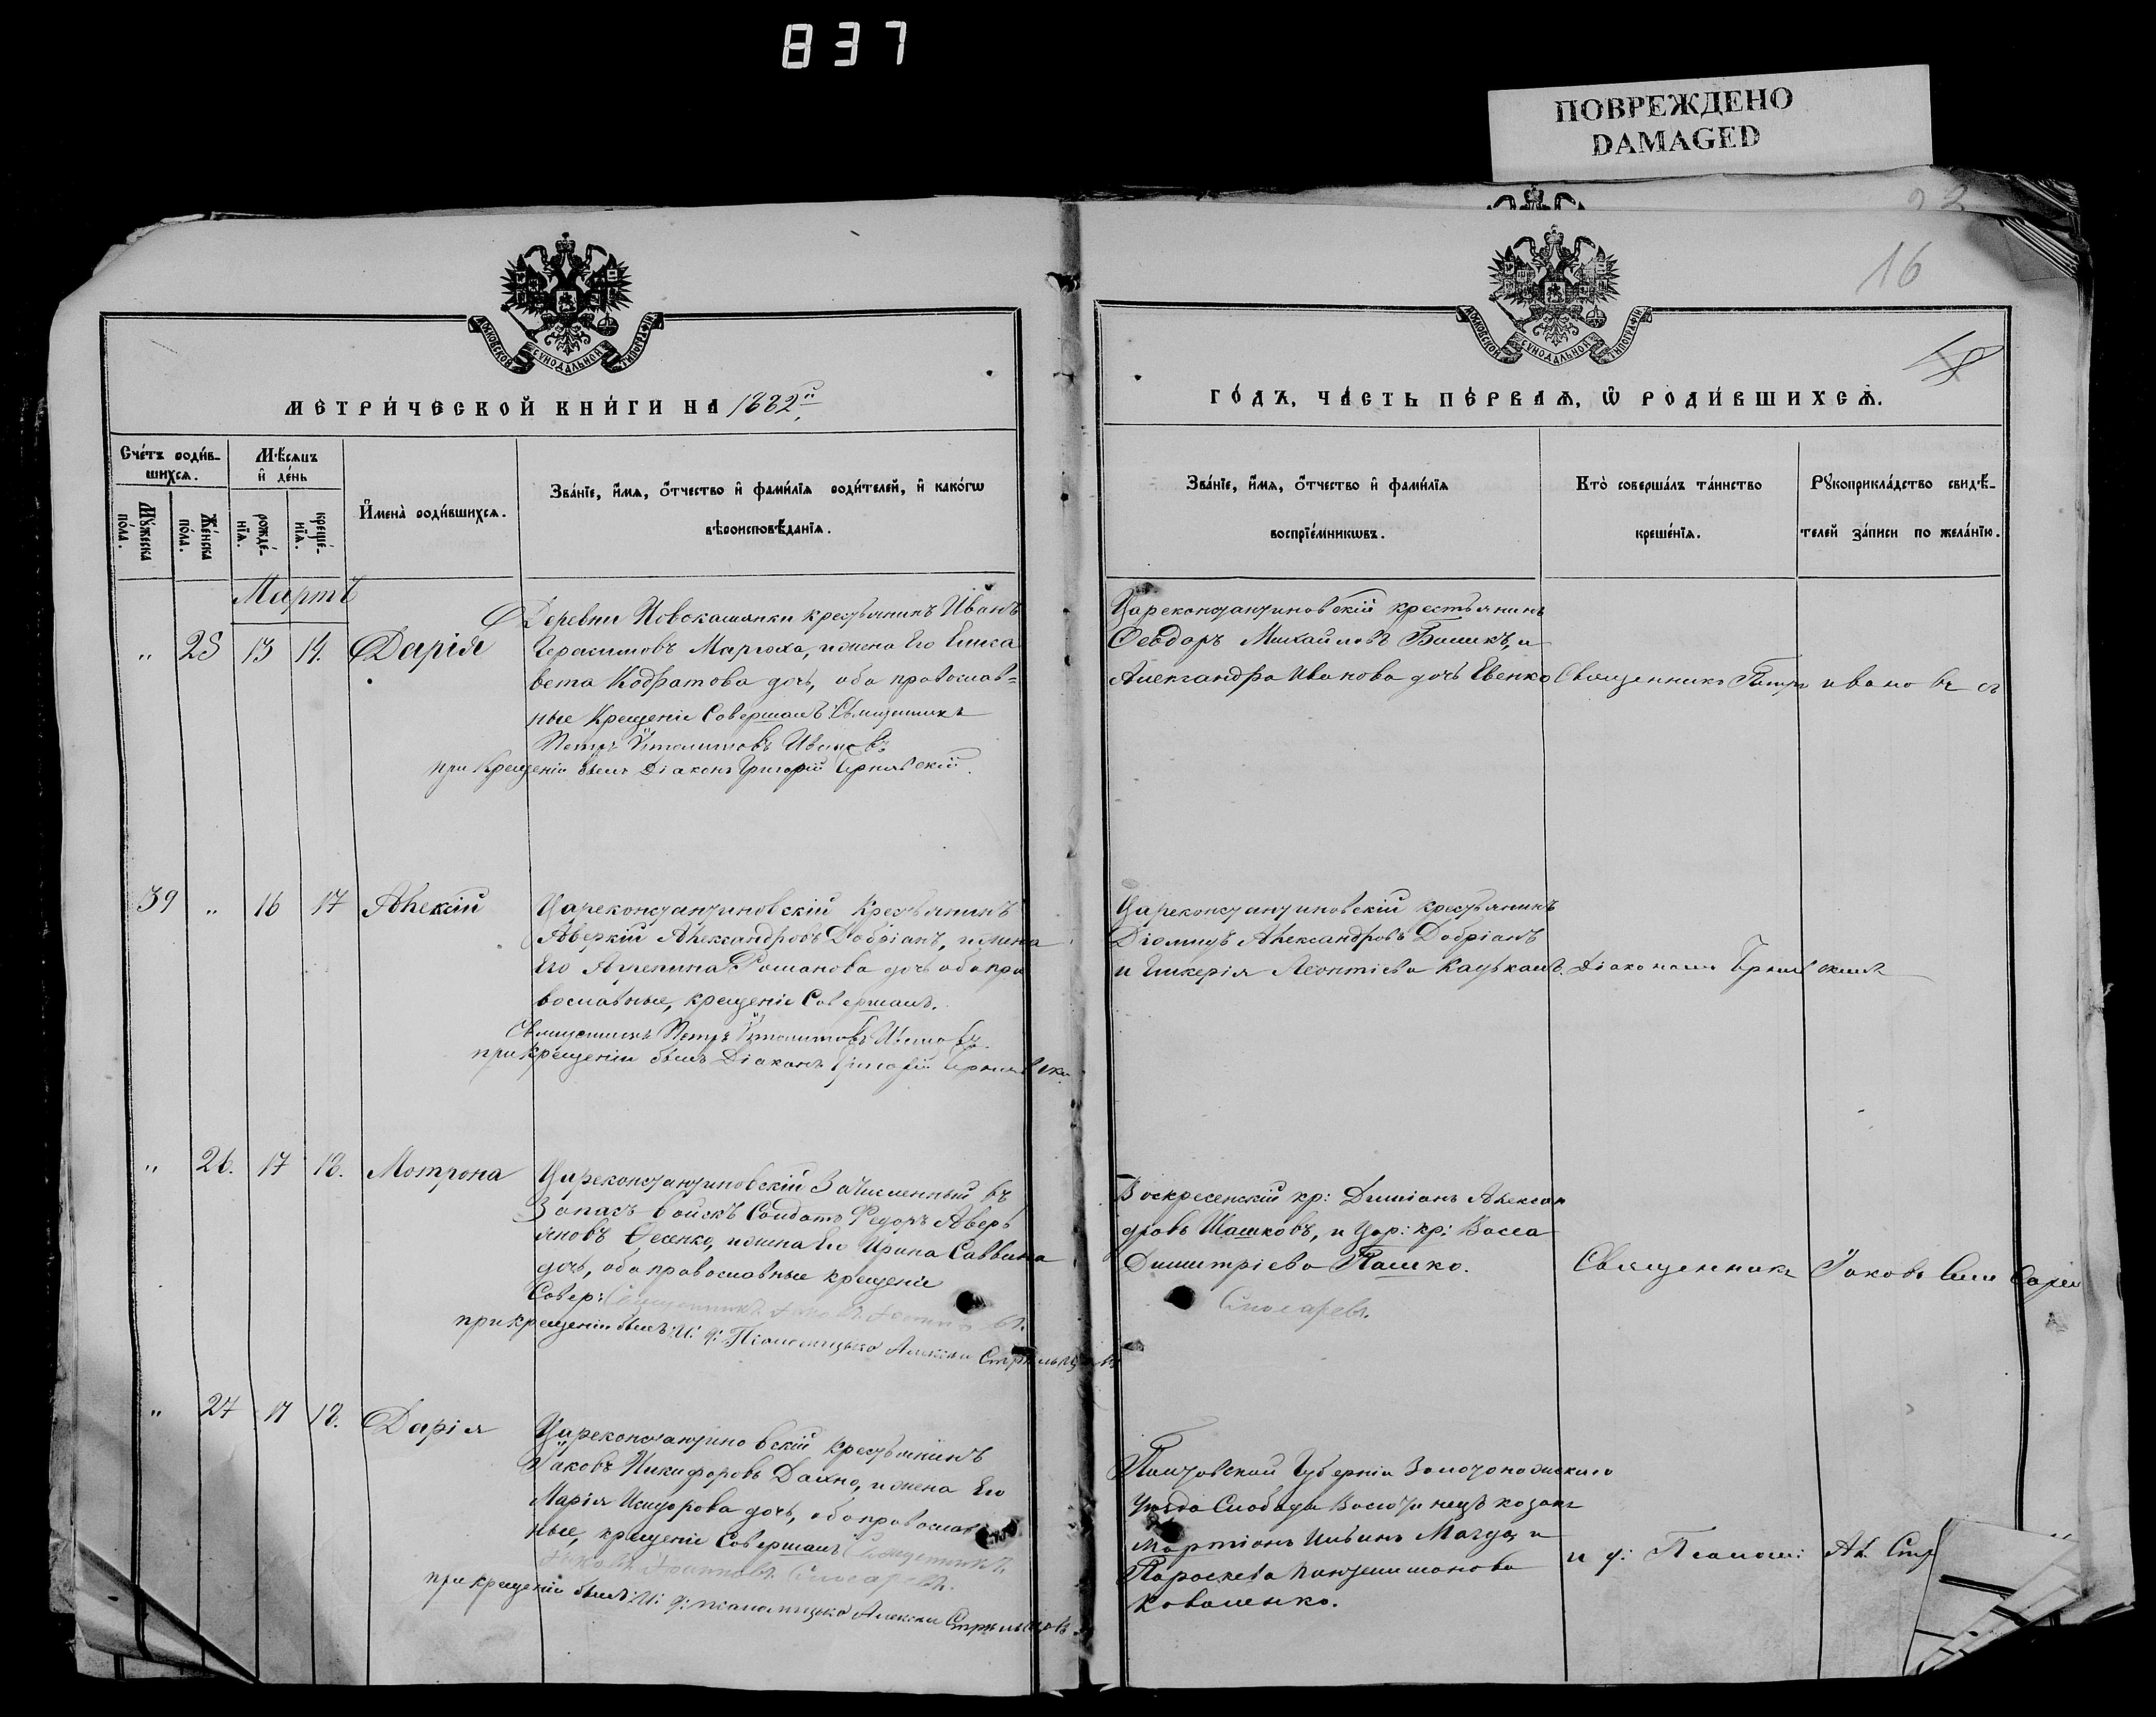 837
ПОВРЕЖДЕНО
DAMAGED
16
МОСКОВСКОЙ СУНОДАЛЬНОЙ ТИПОГРАФІИ
МОСКОВСКОЙ СУНОДАЛЬНОЙ ТИПОГРАФІИ
МЕТРИ́ЧЕСКОЙ КНИ́ГИ НА 1882й
ГО́ДЪ, ЧА́СТЬ ПЕ́РВАѦ, Ѿ РОДИ́ВШИХСѦ.
Сче́тъ роди́в-
шихсѧ.
Мꙋ́жеска по́ла.
Же́нска по́ла.
Мѣ́сѧцъ
и҆ де́нь
рожде́-нїѧ.
креще́-нїѧ.
И҆мена̀ роди́вшихсѧ.
Зва́нїе, и҆́мѧ, ѻ҆́тчество и҆ фами́лїѧ роди́телей, и҆ како́гѡ
вѣроисповѣ́данїѧ.
Зва́нїе, и҆́мѧ, ѻ҆́тчество и҆ фами́лїѧ
воспрїе́мникѡвъ.
Кто̀ соверша́лъ та́инство
креще́нїѧ.
Рꙋкоприкла́дство свидѣ́-
телей за́писи по жела́нїю.
Мартъ
" 25 13 14. Дарія
Деревни Новокашанки крестьянинъ Иванъ
Герасимовъ Маргоха, и жена Его Елиса
вета Кодратова дочь, оба православ=
ные Крещеніе Совершалъ Священникъ
Петръ Ивановъ
при Крещеніи былъ Діаконъ Григорій Чернявскій.
Цареконстантиновскій крестьянинъ
Феодоръ Михайловъ Бишикъ, и
Александра Иванова дочь Евенко
Священникъ Петръ Ивановъ
39 " 16 17 Алексій
Цареконстантиновскій Крестьянинъ
Аверкій Александровъ Добріанъ, и жена
Его Агрепина Романова дочь оба пра
вославные, крещеніе Совершалъ.
Священникъ Петръ Ивановъ.
при крещеніи былъ Діаконъ Григорій Чернявскій
Цареконстантиновскій крестьянинъ
Діомидъ Александровъ Добріанъ
и Гликерія Леонтіева
Діаконъ Чернявскій
" 26. 17 18. Мотрона
Цареконстантиновскій Зачисленный въ
Запасъ войскъ Солдатъ Федоръ Аверь
яновъ Фесенко, и жена Его Ирина Саввина
дочь, оба православные крещеніе
Совер: Священникъ
при крещеніи былъ И: д: Псаломщика Алексѣй Стрѣльцовъ
Воскресенскій кр: Алексан
дровъ Шашковъ, и Цар: кр: Васса
Димитріева Пашко.
Слюсаревъ.
Священникъ Іаковъ
" 27 17 18. Дарія
Цареконстантиновскій Крестьянинъ
Іаковъ Никифоровъ Дахно, и жена Его
Марія Исидорова дочь, оба православ
ные, крещеніе Совершалъ Священникъ
Слюсаревъ.
при крещеніи былъ И: д: псаломщика Алексѣй Стрѣльцовъ.
Полтавской Губерніи Золотоношскаго
Уѣзда Слобода козакъ
и
Параскева Пантелимонова
Коваленко.
и д: Псалом: Ал. Стр